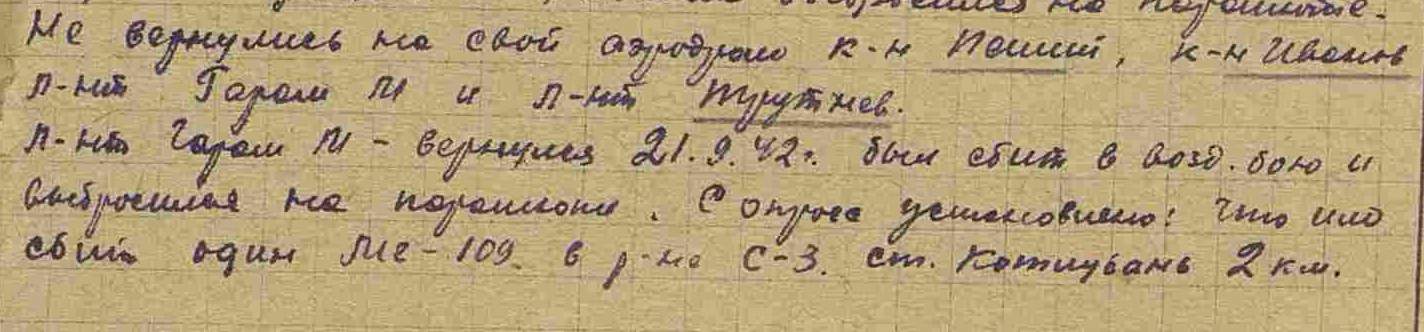 на парашюте.
Не вернулись на свой аэродром к-н , к-н Иванов
л-нт Гарам М и л-нт Трутнев.
л-нт Гарам М - вернулся 21.9.42г. был сбит в возд. бою и
выбросился на парашюте. С опроса установлено: что им
сбит один Ме-109 в р-не С-З. ст. Котлубань 2 км.